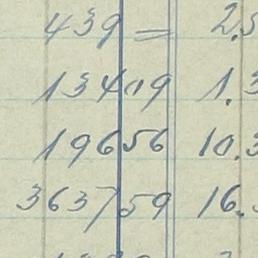 439 = 2.5
13409 1.3
19656 10.3
363759 16.